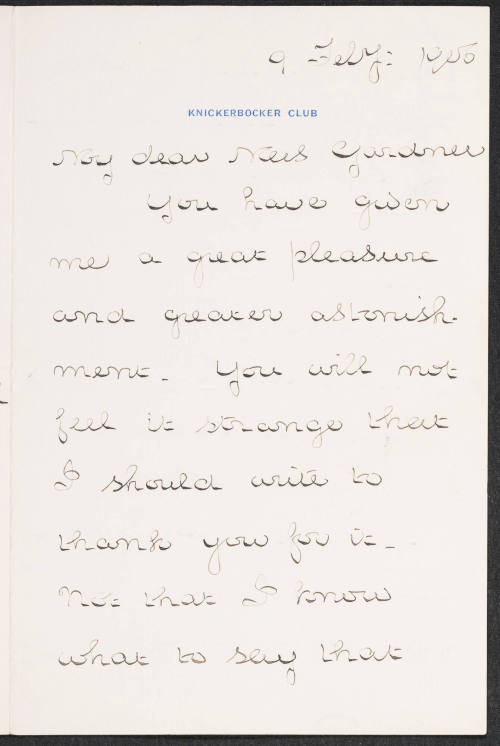 9 Feby: 1906
KNICKERBOCKER CLUB
My dear Mrs Gardner
You have given
me a great pleasure
and greater astonish-
ment. You will not
feel it strange that
I should write to
thank you for it.
Not that I know
what to say that